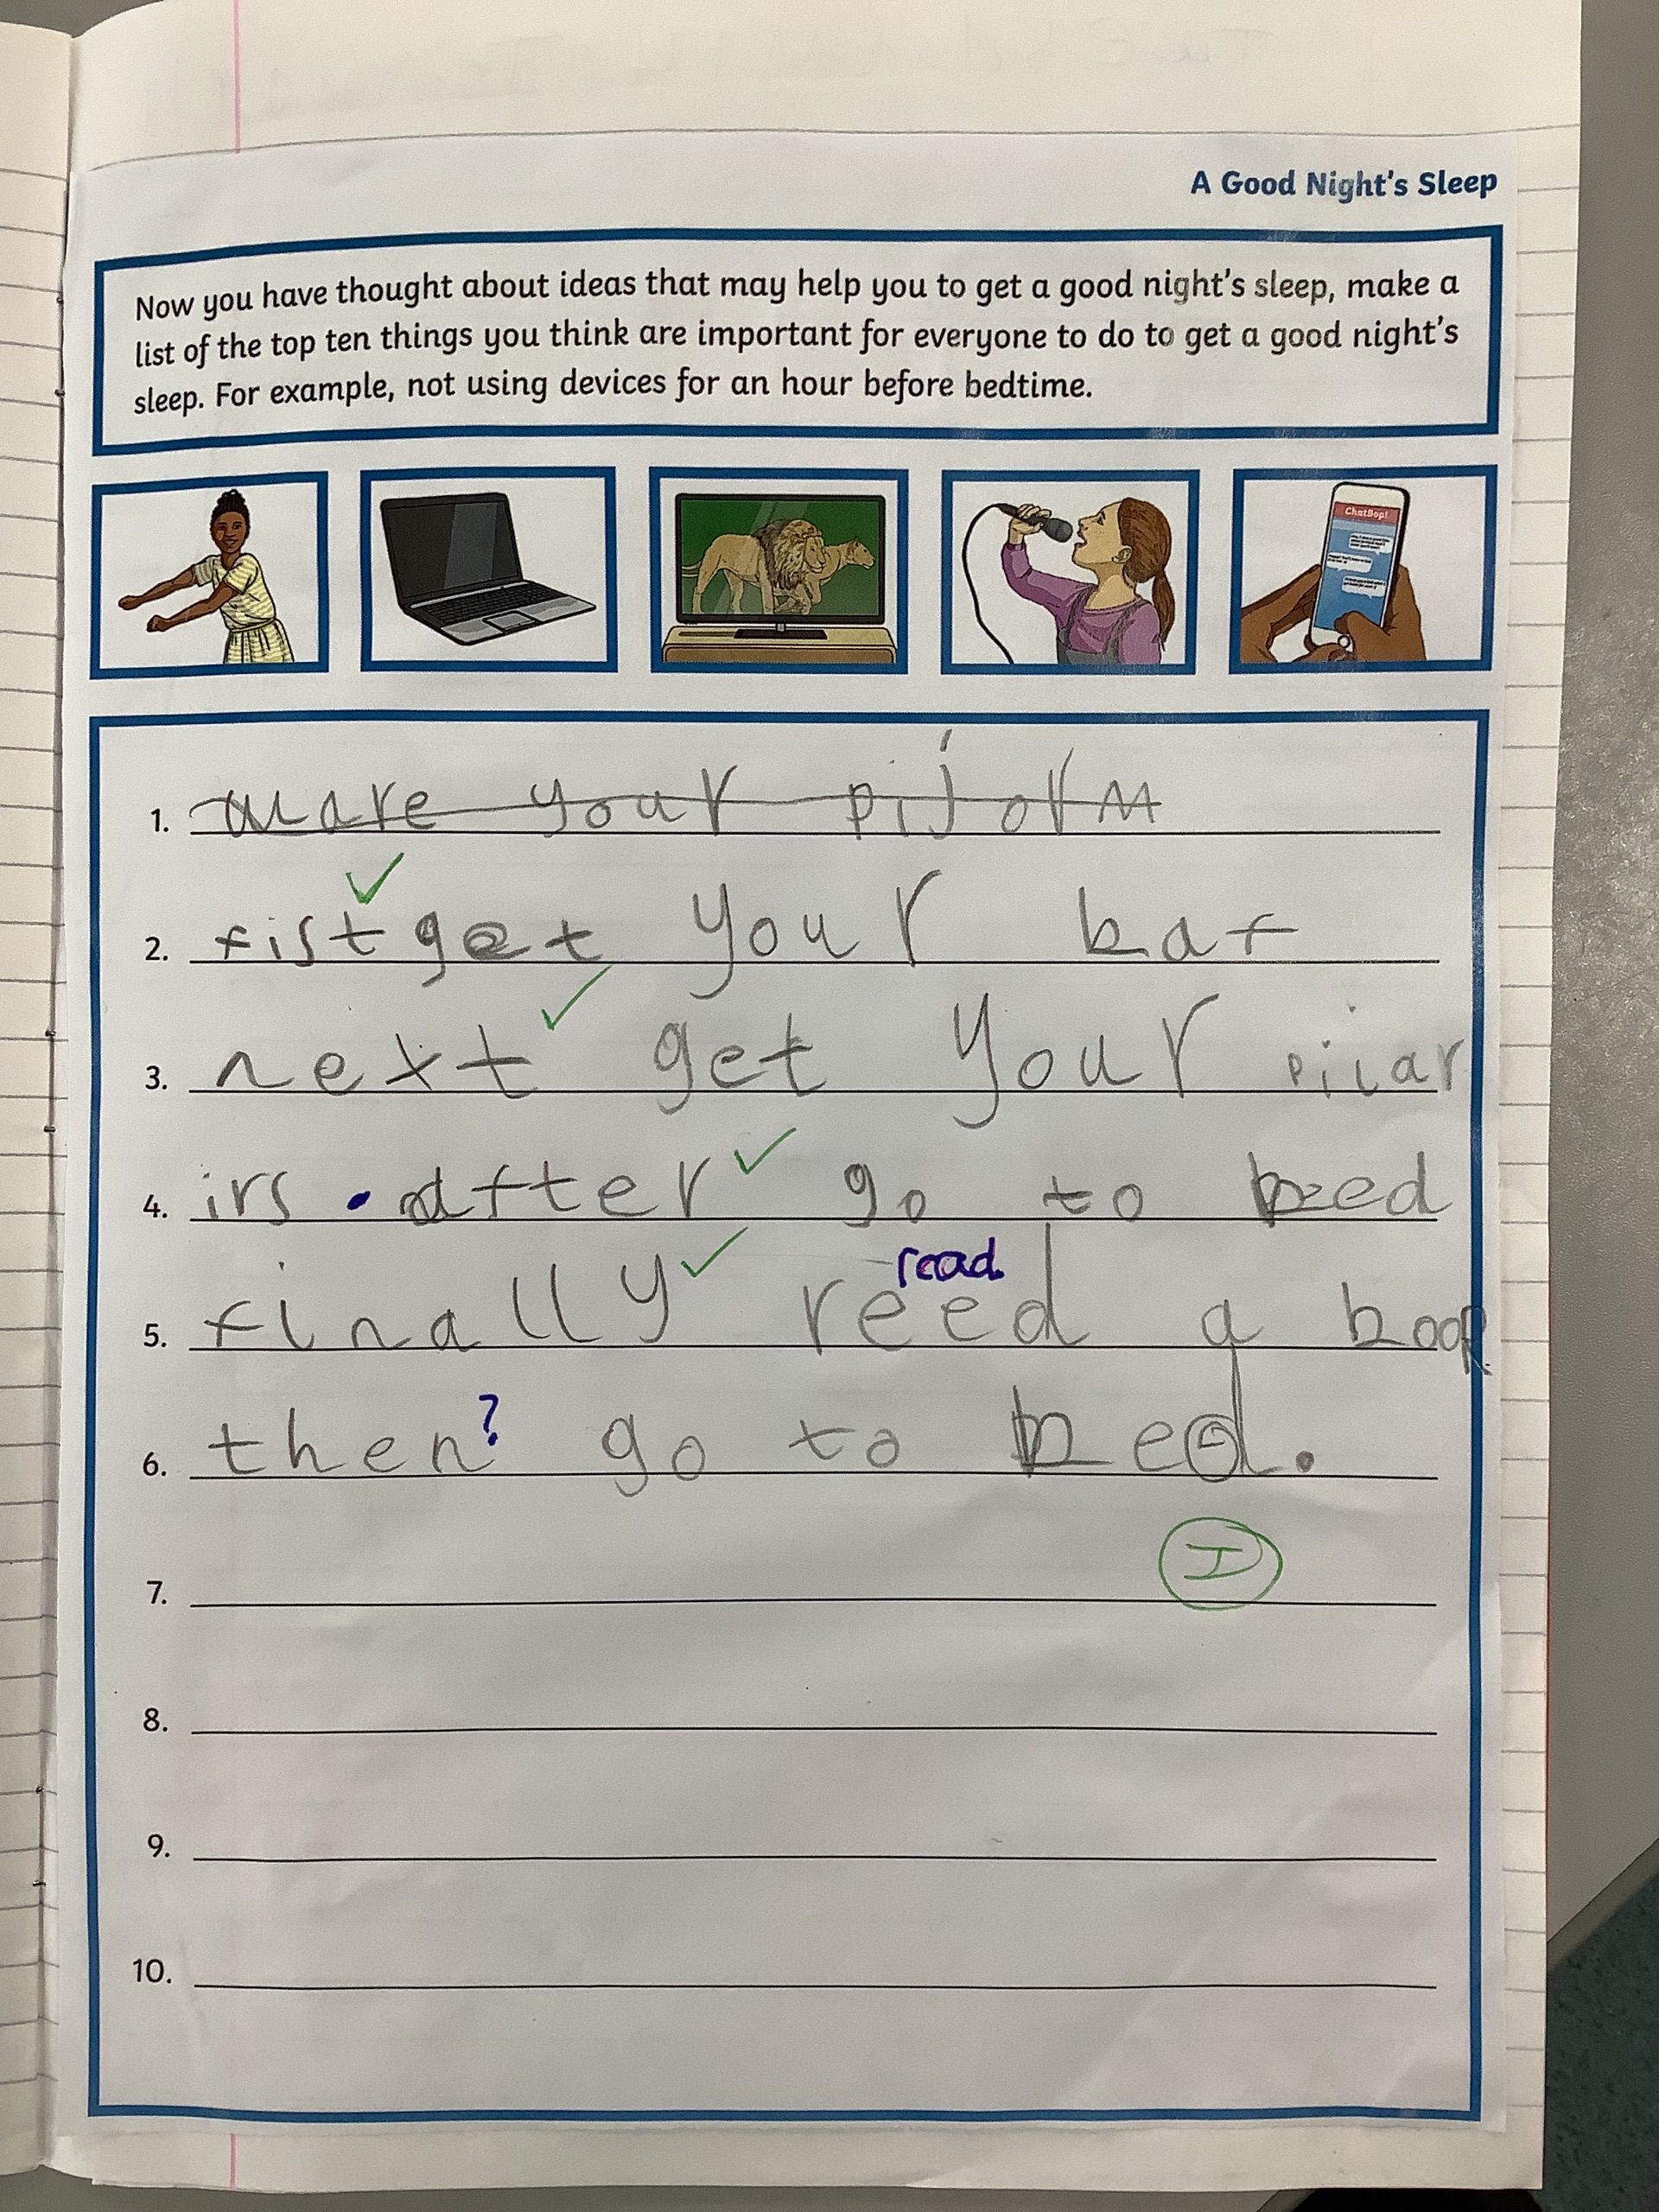 A Good Night's Sleep
Now you have thought about ideas that may help you to get a good night's sleep, make a
list of the top ten things you think are important for everyone to do to get a good night's
sleep. For example, not using devices for an hour before bedtime.
ChatBop!
1. ware your pijorm
2. fist get your bat
3. next get your pijar
4. irs . after go to bed
read
5. finally reed a book
6. then? go to bed.
I
7.
8.
9.
10.